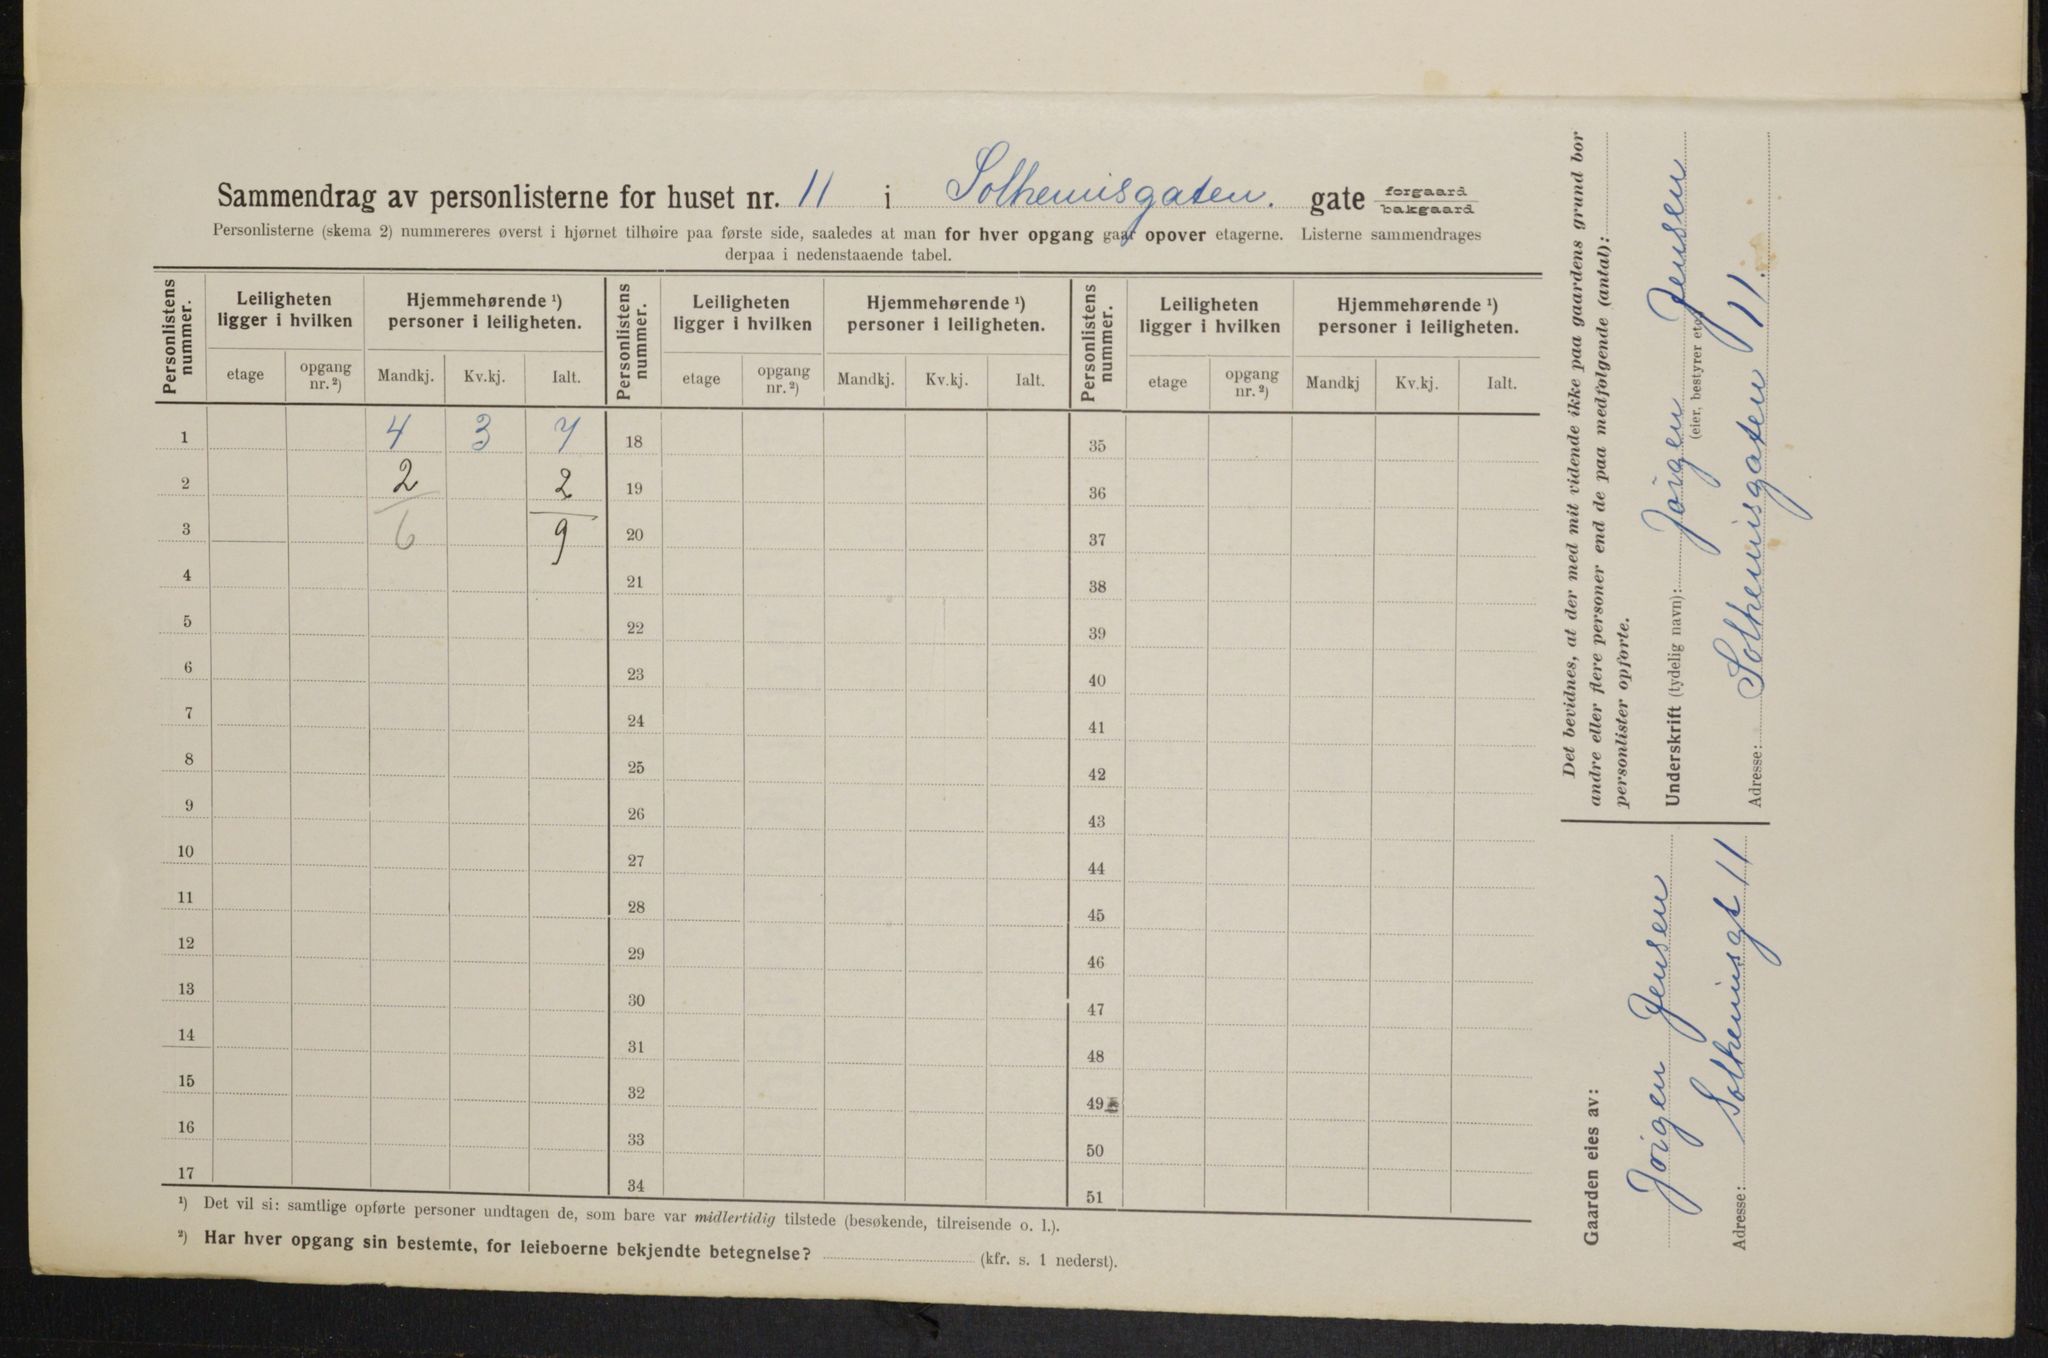 Sammendrag av personlisterne for huset nr. 11 i Solheimsgaten. gate forgaard bakgaard
Personlisterne (skema 2) nummereres øverst i hjørnet tilhøire paa første side, saaledes at man for hver opgang gaar opover etagerne. Listerne sammendrages
derpaa i nedenstaaende tabel.
Personlistens nummer. Leiligheten ligger i hvilken Hjemmehørende ¹) personer i leiligheten. Personlistens nummer. Leiligheten ligger i hvilken Hjemmehørende ¹) personer i leiligheten. Personlistens nummer. Leiligheten ligger i hvilken Hjemmehørende ¹) personer i leiligheten.
etage opgang nr. ²) Mandkj. Kv.kj. Ialt. etage opgang nr. ²) Mandkj. Kv.kj. Ialt. etage opgang nr. ²) Mandkj Kv.kj. Ialt.
1 4 3 7 18 35
2 2 2 19 36
3 6 9 20 37
4 21 38
5 22 39
6 23 40
7 24 41
8 25 42
9 26 43
10 27 44
11 28 45
12 29 46
13 30 47
14 31 48
15 32 49
16 33 50
17 34 51
¹) Det vil si: samtlige opførte personer undtagen de, som bare var midlertidig tilstede (besøkende, tilreisende o. l.).
²) Har hver opgang sin bestemte, for leieboerne bekjendte betegnelse? (kfr. s. 1 nederst).
Det bevidnes, at der med mit vidende ikke paa gaardens grund bor
andre eller flere personer end de paa medfølgende (antal):
personlister opførte.
Underskrift (tydelig navn): Jørgen Jensen
(eier, bestyrer etc.)
Adresse: Solheimsgaten 11.
Gaarden eies av:
Jørgen Jensen
Adresse: Solheimsgt 11